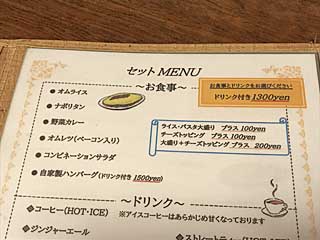 セットMENU
～お食事～
お食事とドリンクをお選びください
ドリンク付き1300yen
● オムライス
● ナポリタン
● 野菜カレー
● オムレツ(ベーコン入り)
● コンビネーションサラダ
● 自家製ハンバーグ(ドリンク付き1500yen)
ライス・パスタ大盛り プラス 100yen
チーズトッピング プラス 100yen
大盛り+チーズトッピング プラス 200yen
～ドリンク～
◇コーヒー(HOT・ICE) ※アイスコーヒーはあらかじめ甘くなっております
◇ジンジャーエール